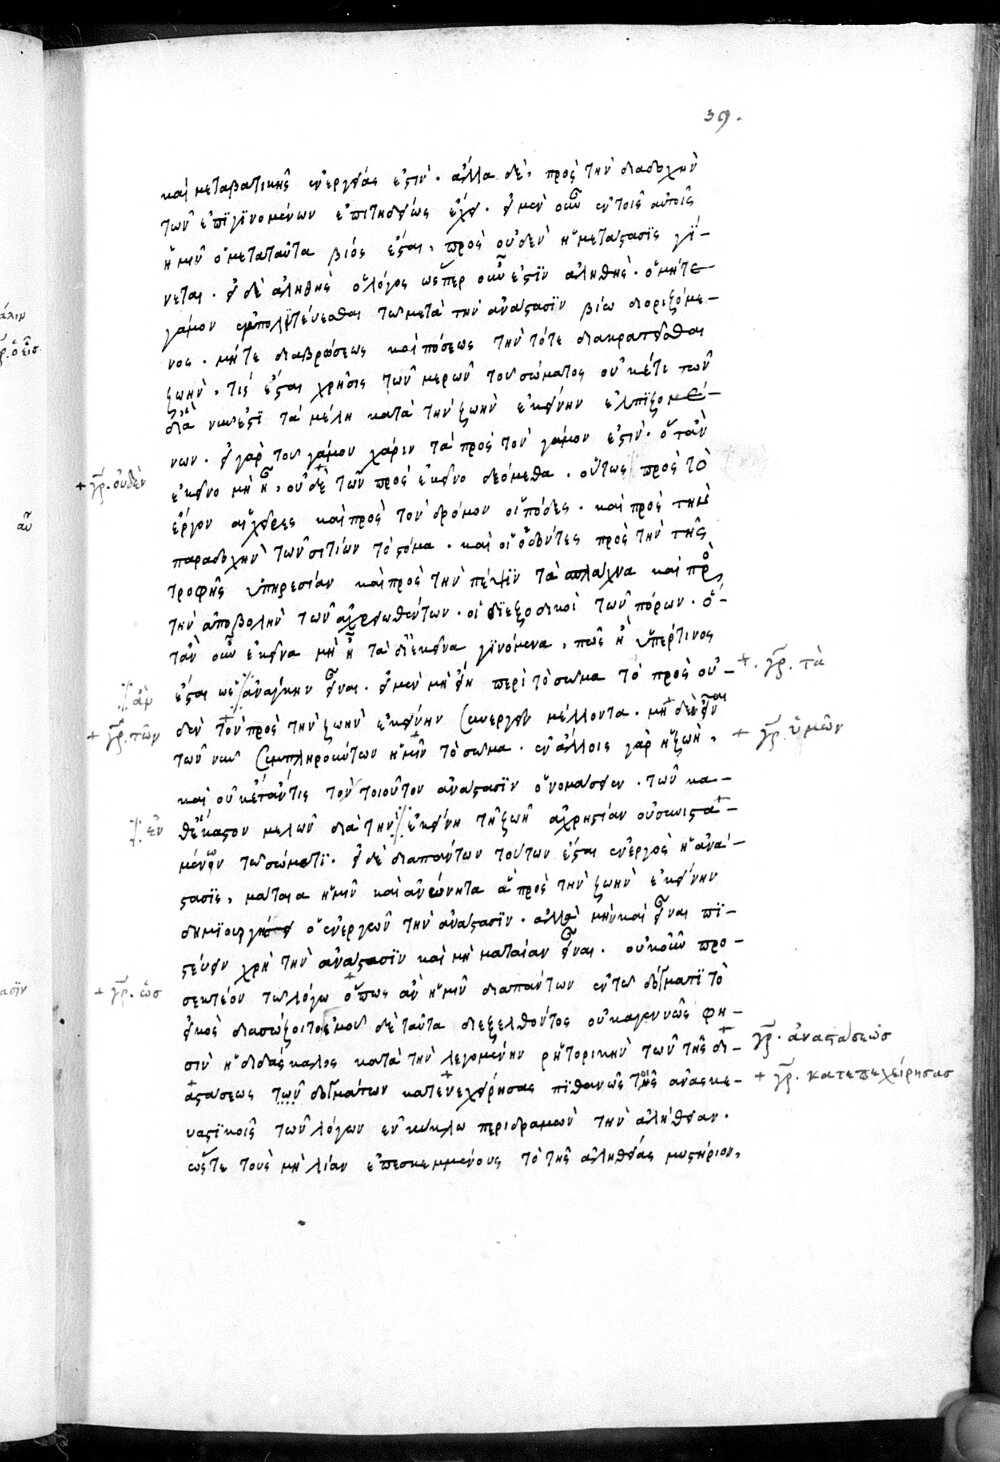 39.
καὶ μεταβατικῆς ἐνεργείας ἐστίν· ἄλλα δὲ, πρὸς τὴν διαδοχὴν
τῶν ἐπιγινομένων ἐπιτηδείως ἔχει· εἰ μὲν οὖν ἐν τοῖς αὐτοῖς
ἡμῖν ὁ μεταταῦτα βίος ἔσται, πρὸς οὐδὲν ἡ μετάστασις γί-
νεται· εἰ δὲ ἀληθὴς ὁ λόγος ὥσπερ οὖν ἐστὶν ἀληθὴς· ὁ μήτε
γάμον ἐμπολιτεύεσθαι τῶ μετὰ τὴν ἀνάστασιν βίω διοριζόμε-
νος· μήτε διαβρώσεως καὶ πόσεως τὴν τότε διακρατεῖσθαι
ζωὴν, τίς ἔσται χρῆσις τῶν μερῶν τοῦ σώματος οὐκέτι τῶν
διὰ νῦν ἐστὶ τὰ μέλη κατὰ τὴν ζωὴν ἐκείνην ἐλπιζομέ-
νων· εἰ γὰρ τοῦ γάμου χάριν τὰ πρὸς τὸν γάμον ἐστίν· ὅταν
ἐκεῖνο μὴ ᾖ, οὐδὲ τῶν πρὸς ἐκεῖνο δεόμεθα· οὕτως πρὸς τὸ
+ γρ. οὐδὲν
ἔργον αἱ χεῖρες καὶ πρὸς τὸν δρόμον οἱ πόδες· καὶ πρὸς τὴν
παραδοχὴν τῶν σιτίων τὸ στόμα· καὶ οἱ ὀδόντες πρὸς τὴν τῆς
τροφῆς ὑπηρεσίαν καὶ πρὸς τὴν πέψιν τὰ σπλάγχνα καὶ πρὸς
τὴν ἀποβολὴν τῶν ἀχρειωθέντων· οἱ διεξοδικοὶ τῶν πόρων· ὅ-
ταν οὖν ἐκεῖνα μὴ ᾖ τὰ δι' ἐκεῖνα γινόμενα, πῶς ἢ ὑπὲρ τίνος
ἔσται ὡς ἀνάγκην εἶναι· εἰ μὲν μὴ εἴη περὶ τὸ σῶμα τὸ πρὸς οὐ-
+. γρ. τὰ
ἂν
δὲν τὸν πρὸς τὴν ζωὴν ἐκείνην συνεργεῖν μέλλοντα· μηδὲ εἶναι
+ γρ. τῶν
τῶν νῦν συμπληρούντων ἡμῖν τὸ σῶμα· ἐν ἄλλοις γὰρ ἡ ζωὴ,
+ γρ. ὑμῶν
καὶ οὐκέτ' ἄν τις τὸν τοιοῦτον ἀνάστασιν ὀνομάσειεν· τῶν κα-
θέκαστον μελῶν διὰ τὴν ἐκείνη τῆ ζωῆ ἀχρηστίαν οὐ συνιστα-
ἐν
μένων τῶ σώματι· εἰ δὲ διαπάντων τούτων ἔσται ἐνεργὸς ἡ ἀνά-
στασις, μάταια ἡμῖν καὶ ἀνόνητα ἃ πρὸς τὴν ζωὴν ἐκείνην
δημιουργήσει ὁ ἐνεργῶν τὴν ἀνάστασιν· ἀλλὰ μὴν καὶ εἶναι πι-
στεύειν χρὴ τὴν ἀνάστασιν καὶ μὴ ματαίαν εἶναι· οὐκοῦν προ-
σεκτέον τῶ λόγω ὅπως ἂν ἡμῖν διαπάντων ἐν τῶ δόγματι τὸ
+ γρ. ὡς
εἰκὸς διασώζοιτο ἐμοῦ δὲ ταῦτα διεξελθόντος οὐκ ἀγεννῶς φη-
σὶν ἡ διδάσκαλος κατὰ τὴν λεγομένην ῥητορικὴν τῶν τῆς δι-
γρ. ἀναστάσεως
αστάσεως τῶν δογμάτων κατενεχείρησας πιθανῶς τοῖς ἀνασκε-
+ γρ. κατεπεχείρησας
υαστικοῖς τῶν λόγων ἐν κύκλω περιδραμὼν τὴν ἀλήθειαν·
ὥστε τοὺς μὴ λίαν ἐπεσκεμμένους τὸ τῆς ἀληθείας μυστήριον,